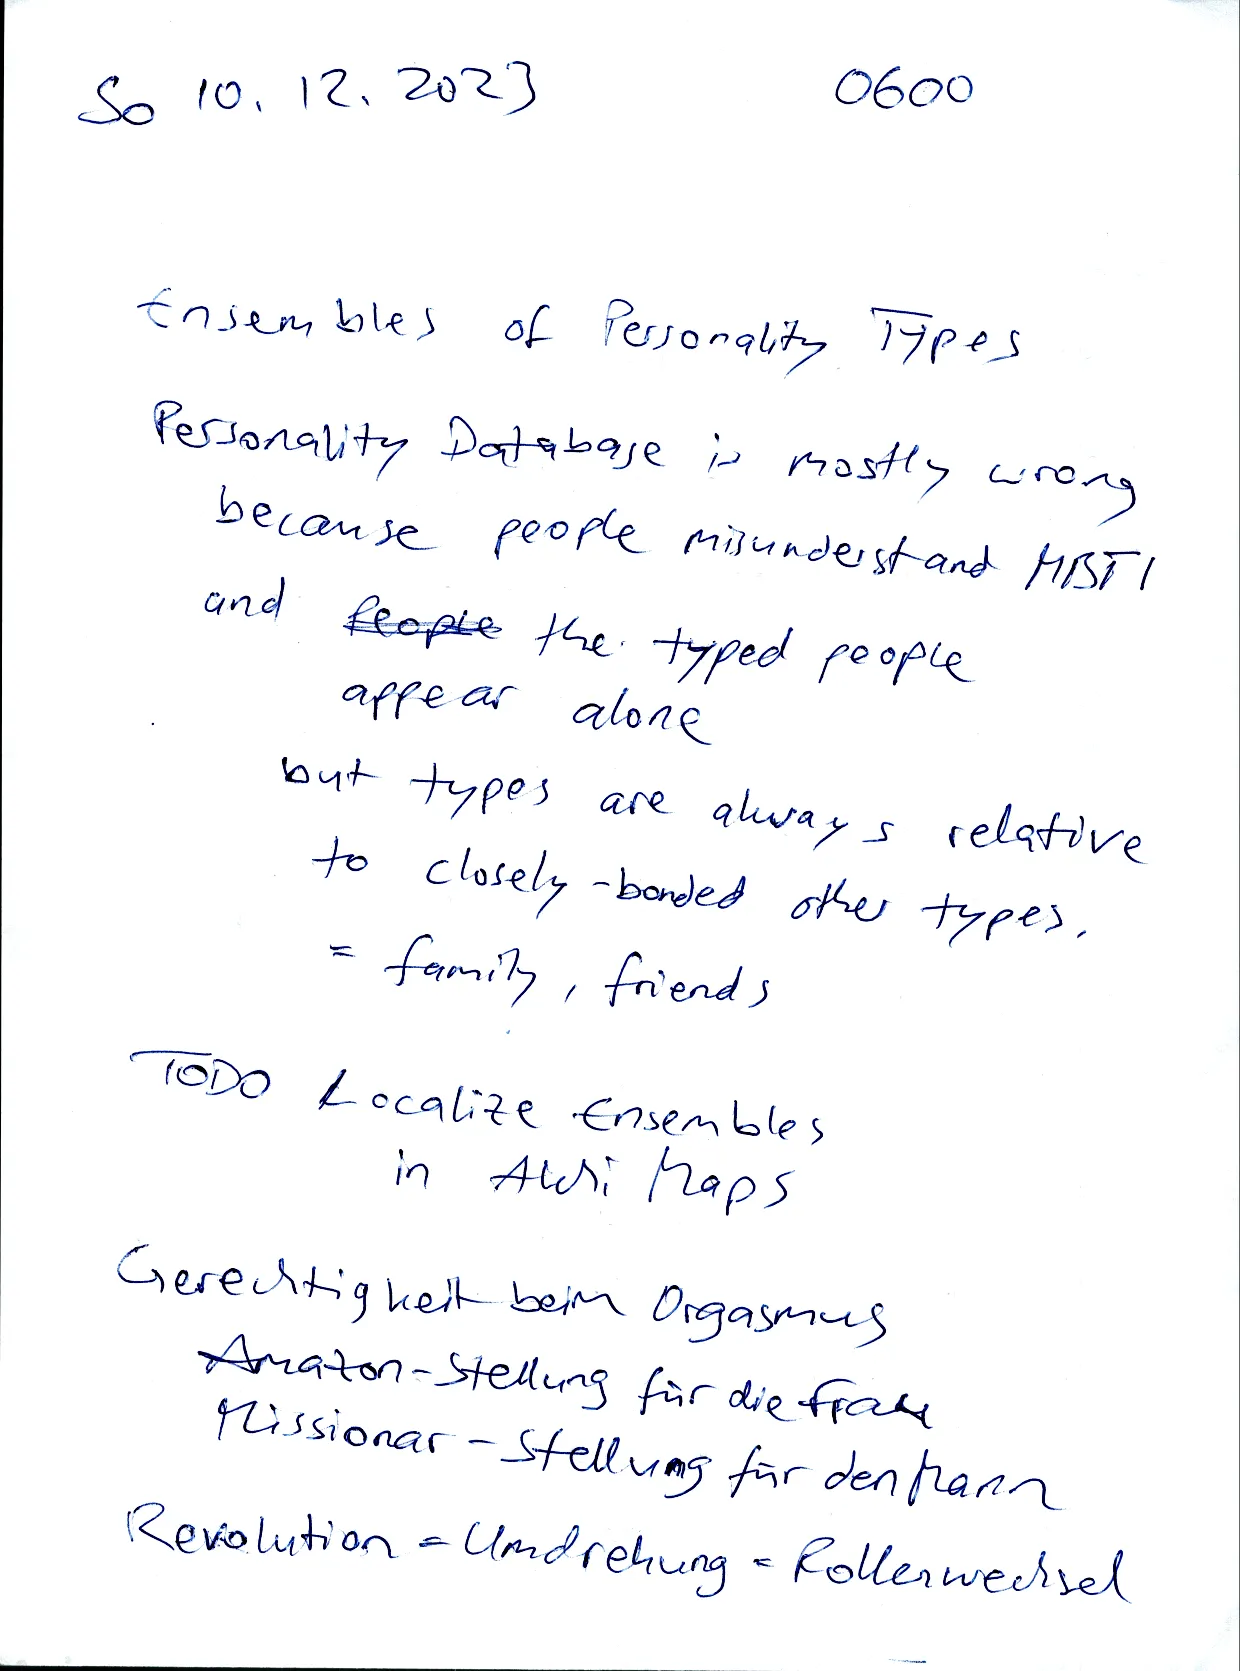 So 10. 12. 2023 0600
Ensembles of Personality Types
Personality Database is mostly wrong
because people misunderstand MBTI
and people the typed people
appear alone
but types are always relative
to closely-bonded other types.
= family, friends
TODO Localize Ensembles
in Alchi Maps
Gerechtigkeit beim Orgasmus
Amazon-Stellung für die Frau
Missionar-Stellung für den Mann
Revolution = Umdrehung = Rollenwechsel